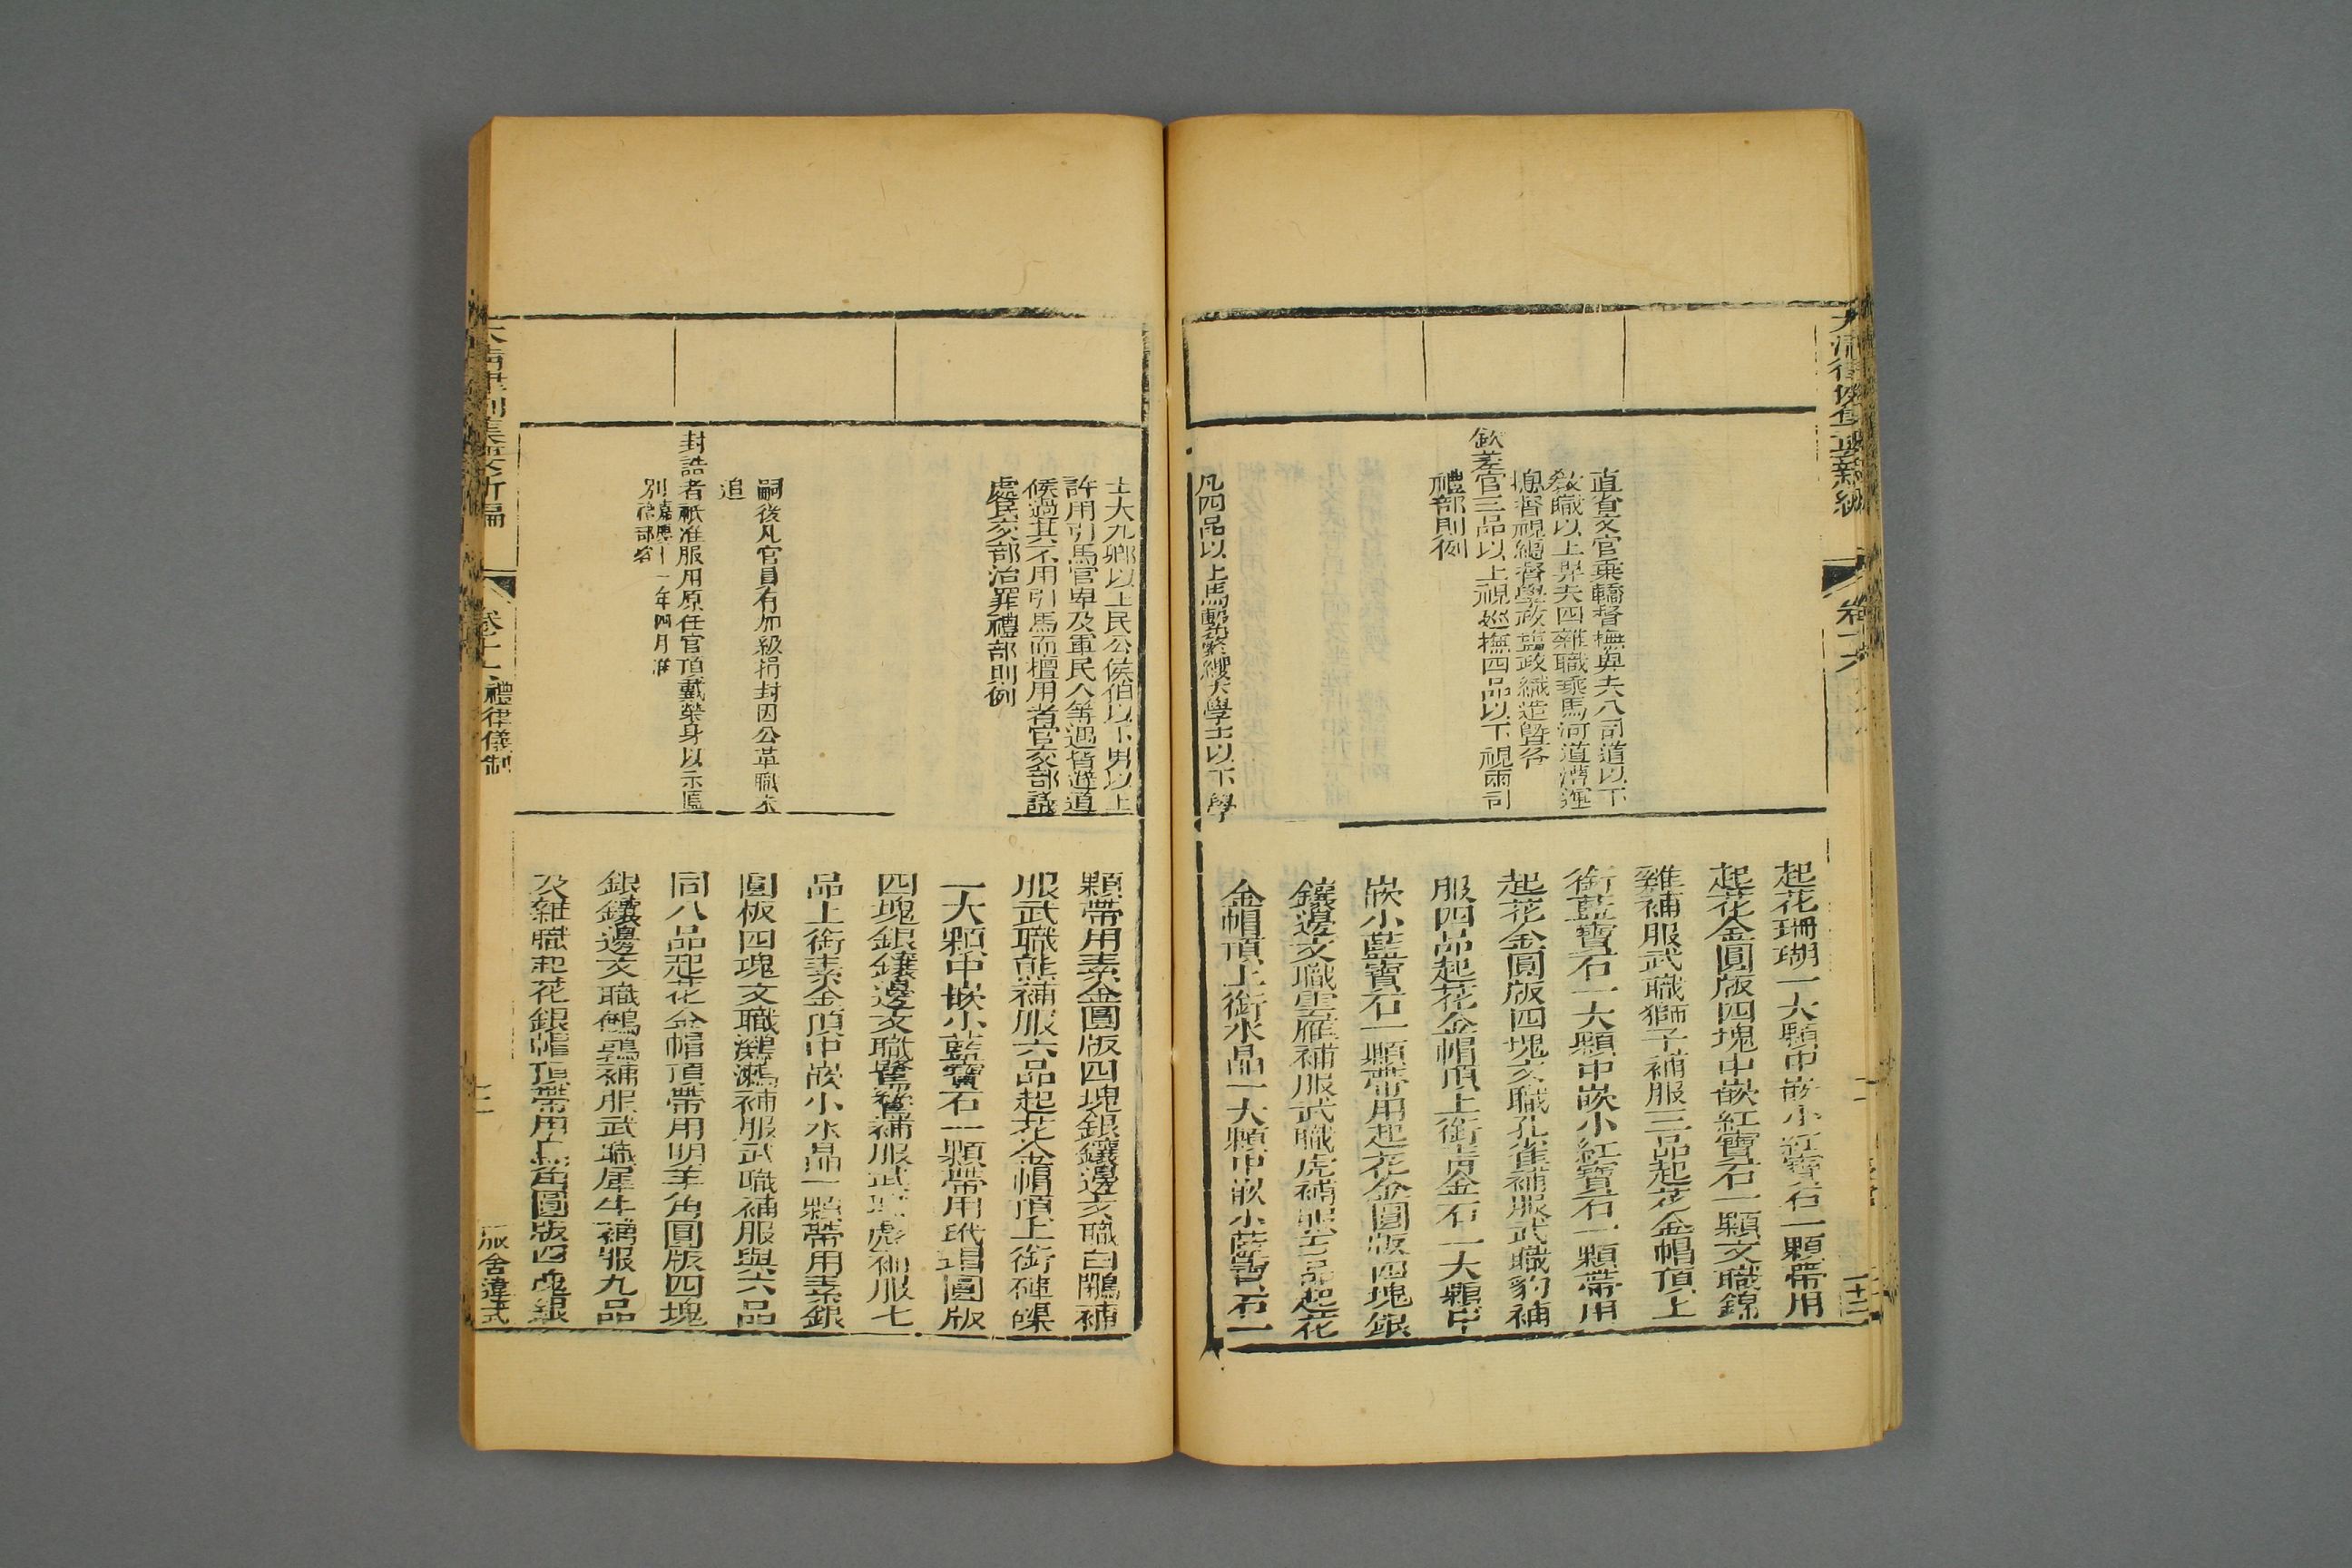 直省文官乘轎督撫輿夫八司道以下
教職以上舁夫四雜職乘馬河道漕運
總督視總督學政鹽政織造暨各
欽差官三品以上視巡撫四品以下視兩司
禮部則例
凡四品以上馬繫繁纓大學士以下學
起花珊瑚一大顆中嵌小紅寶石一顆帶用
起花金圓版四塊中嵌紅寶石一顆文職錦
雞補服武職獅子補服三品起花金帽頂上
銜藍寶石一大顆中嵌小紅寶石一顆帶用
起花金圓版四塊文職孔雀補服武職豹補
服四品起花金帽頂上銜青金石一大顆中
嵌小藍寶石一顆帶用起花金圓版四塊銀
鑲邊文職雲雁補服武職虎補服五品起花
金帽頂上銜水晶一大顆中嵌小藍寶石一
士大九卿以上民公侯伯以下男以上
許用引馬官卑及軍民人等遇皆避道
候過其不用引馬而擅用者官交部議
處民交部治罪禮部則例
嗣後凡官員有加級捐封因公革職未
追
封誥者祇准服用原任官頂戴榮身以示區
別嘉慶十一年四月准禮部咨
顆帶用素金圓版四塊銀鑲邊文職白鷴補
服武職熊補服六品起花金帽頂上銜硨磲
一大顆中嵌小藍寶石一顆帶用玳瑁圓版
四塊銀鑲邊文職鷺鷥補服武職彪補服七
品上銜素金頂中嵌小水晶一顆帶用素銀
圓板四塊文職鸂鶒補服武職補服與六品
同八品起花金帽頂帶用明羊角圓版四塊
銀鑲邊文職鵪鶉補服武職犀牛補服九品
及雜職起花銀帽頂帶用烏角圓版四塊銀
卷十六 禮律儀制 服舍違式